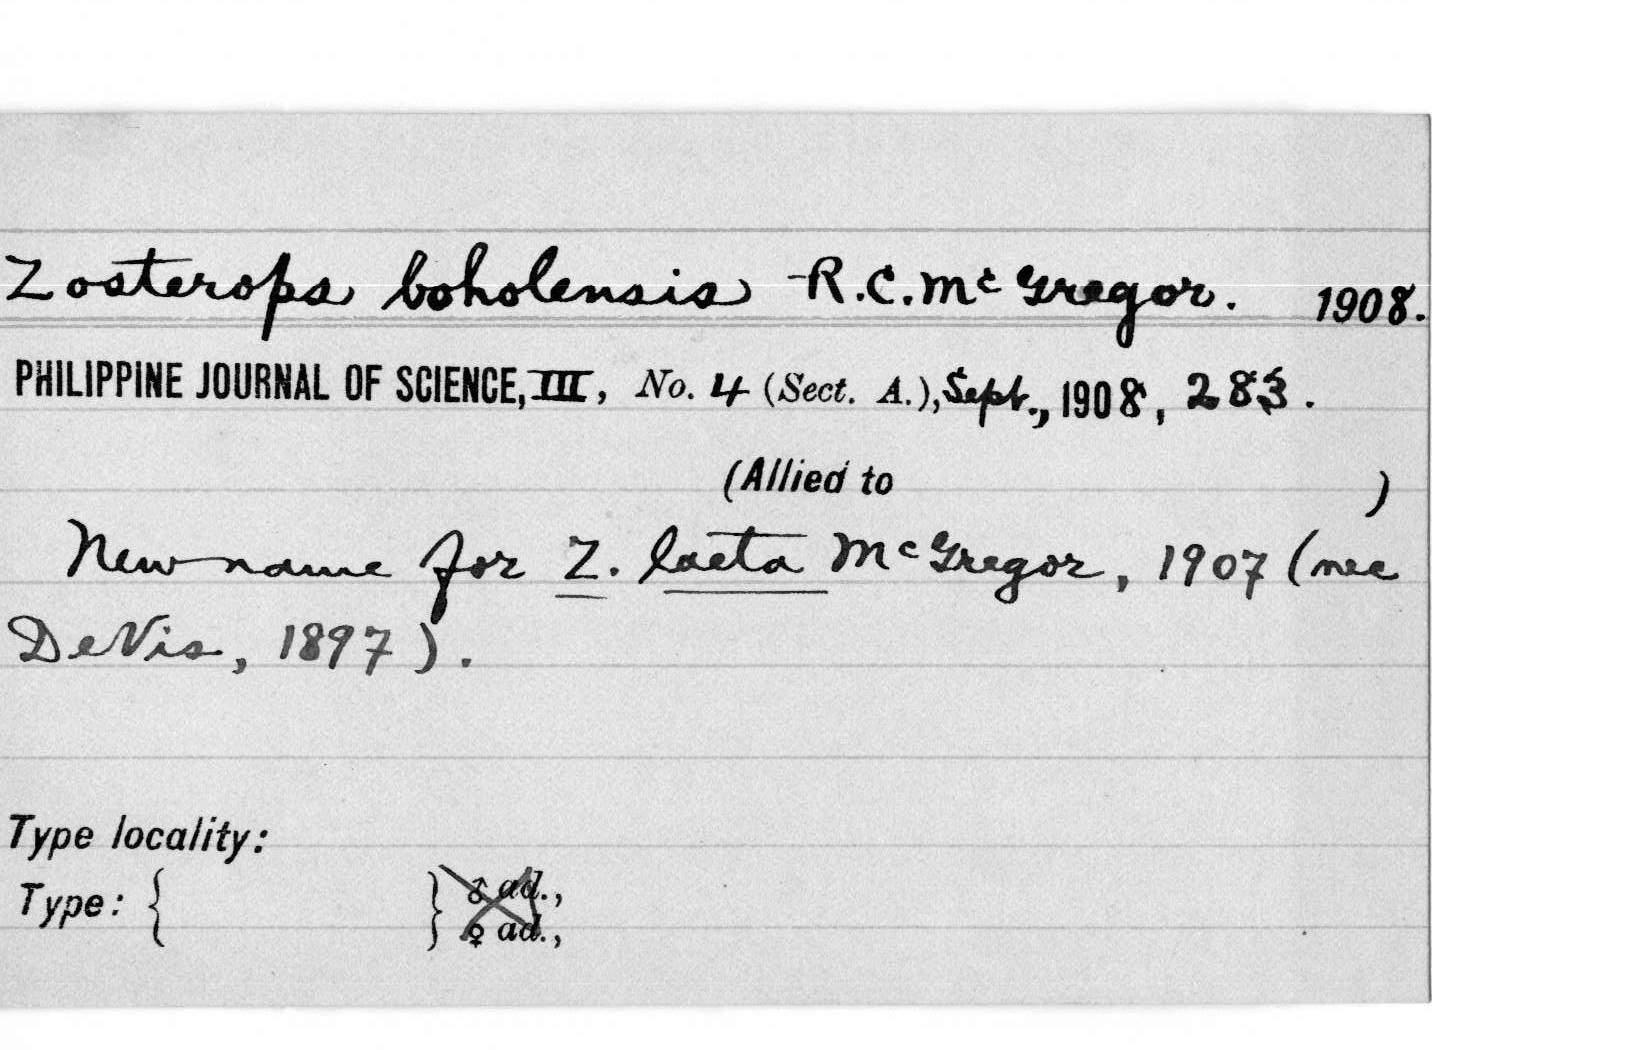 Zosterops boholensis R.C.McGregor. 1908.
PHILIPPINE JOURNAL OF SCIENCE, III, No. 4 (Sect. A.), Sept., 1908, 283.
(Allied to )
New name for Z. laeta McGregor, 1907 (nec
DeVis, 1897).
Type locality:
Type: { } ♂ ad.,
♀ ad.,